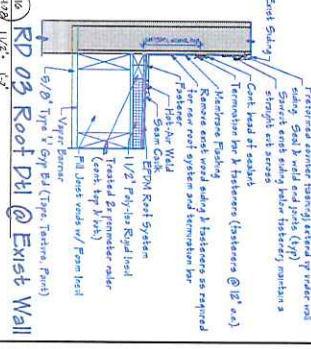 Preformed counter flashing; extend up under wall
siding. Seal & weld end joints (typ)
Sawcut exist siding below fastener; maintain a
straight cut across
Exist Siding
Cont. bead of sealant
Termination bar & fasteners (fasteners @ 12" o.c.)
Membrane Flashing
Remove exist wood siding & fasteners as required
for new roof system and termination bar
Fastener
Hot-Air Weld
Seam Caulk
EPDM Roof System
1 1/2" Poly-Iso Rigid Insul
Treated 2x perimeter nailer
(cont. top & bot.)
Fill Joist voids w/ Foam Insul
Vapor Barrier
5/8" Type 'X' Gyp Bd (Tape, Texture, Paint)
RD 03 Roof Dtl @ Exist Wall
1 1/2" = 1'-0"